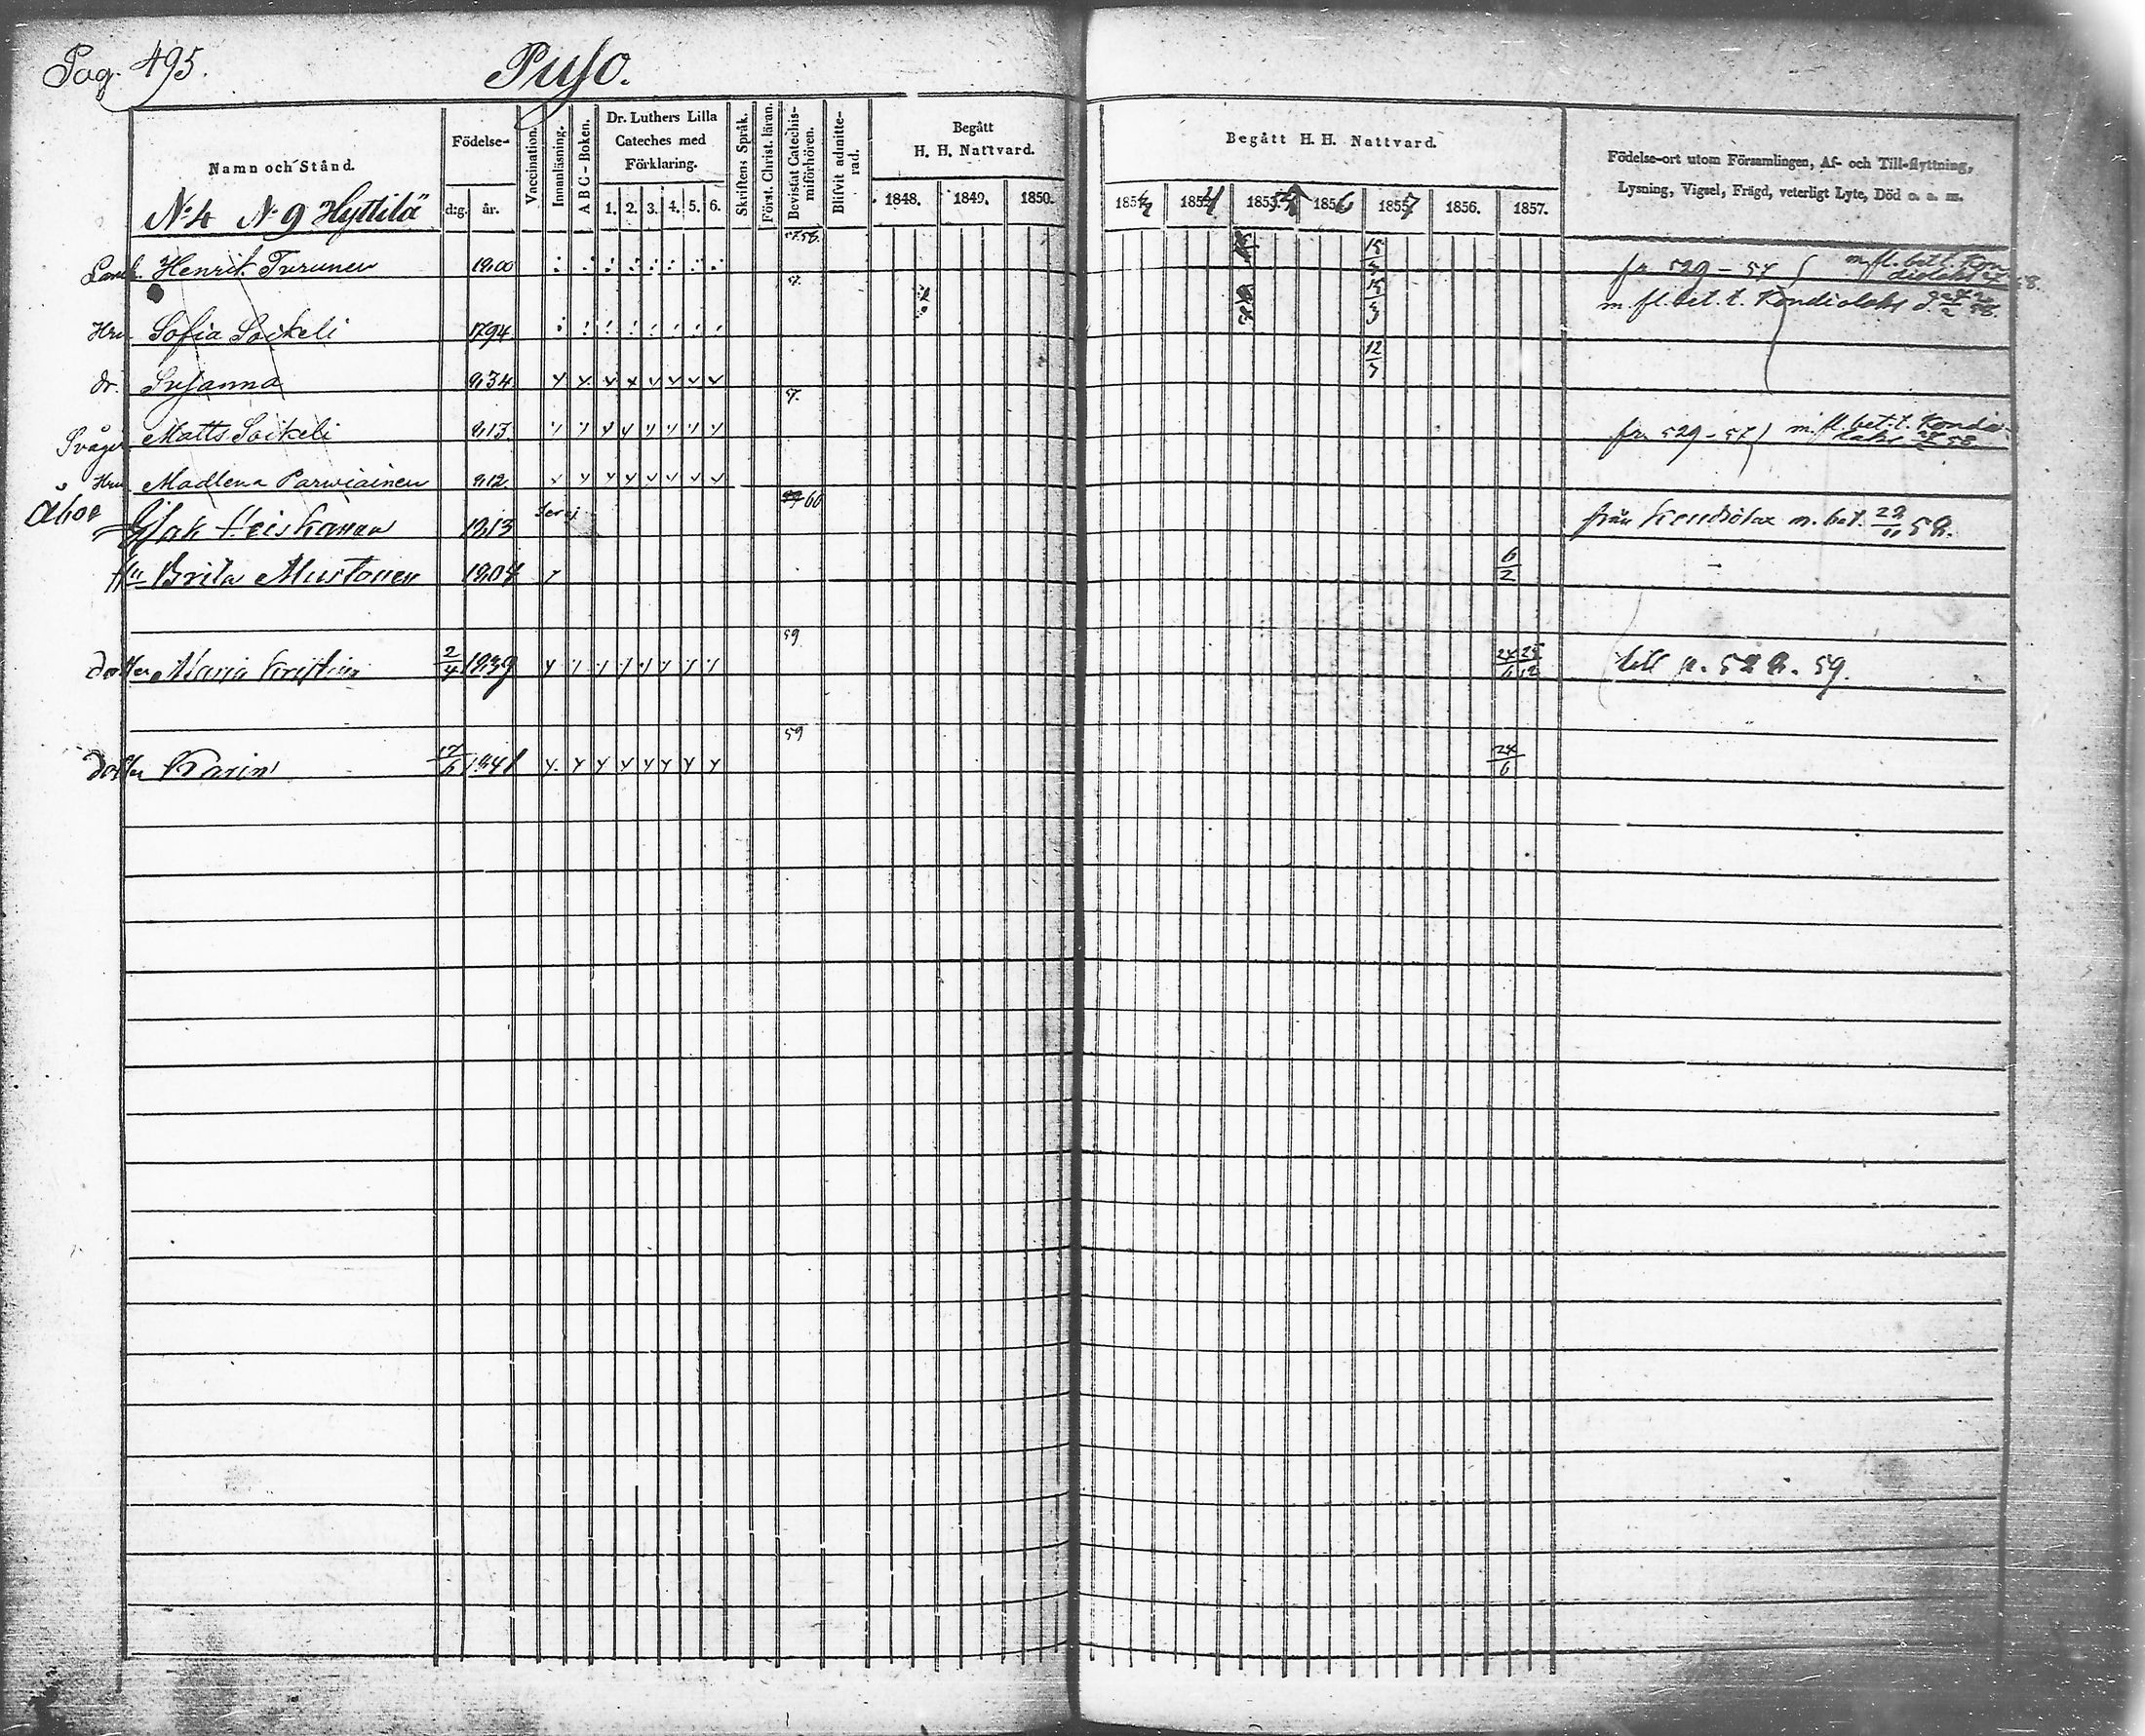 Pag. 495.
Puso.
Namn och Stånd.
Födelse-
d:g.
år.
Vaccination.
Innanläsning.
A B C - Boken.
Dr. Luthers Lilla
Cateches med
Förklaring.
1. 2. 3. 4. 5. 6.
Skriftens Språk.
Först. Christ. läran.
Bevistat Catechis-
miförhören.
Blifvit admitte-
rad.
Begått
H. H. Nattvard.
1848. 1849. 1850.
Begått H. H. Nattvard.
1853 1856 1857 1856. 1857.
Födelse-ort utom Församlingen, Af- och Till-flyttning,
Lysning, Vigsel, Frägd, veterligt Lyte, Död o. s. m.
No 4 No 9 Hyttilä
57 58.
Henrik Turunen 1800 15/3 fr. 529 - 57 m. fl. bet. t. Kon-
diolaks
7.
Hru Sofia Soikeli 1794 15/3 m. fl. bet. t. Kondiolaks
dr. Susanna 834 12/7
7.
Svåger Matts Soikeli 813 fr. 529 - 57 m. fl. bet. t. Kondio-
laks 58
Hru Madlena Parwiainen 812
60
Isak Heiskanen 1813 från Kondiolax m. bet. 58.
Hu Brita Mustonen 1804 6/2
59
dotter Maria Kristin 2/4 1839 24/6 25/12 till p. 528. 59.
59
dotter Karin 17/6 1841 24/6